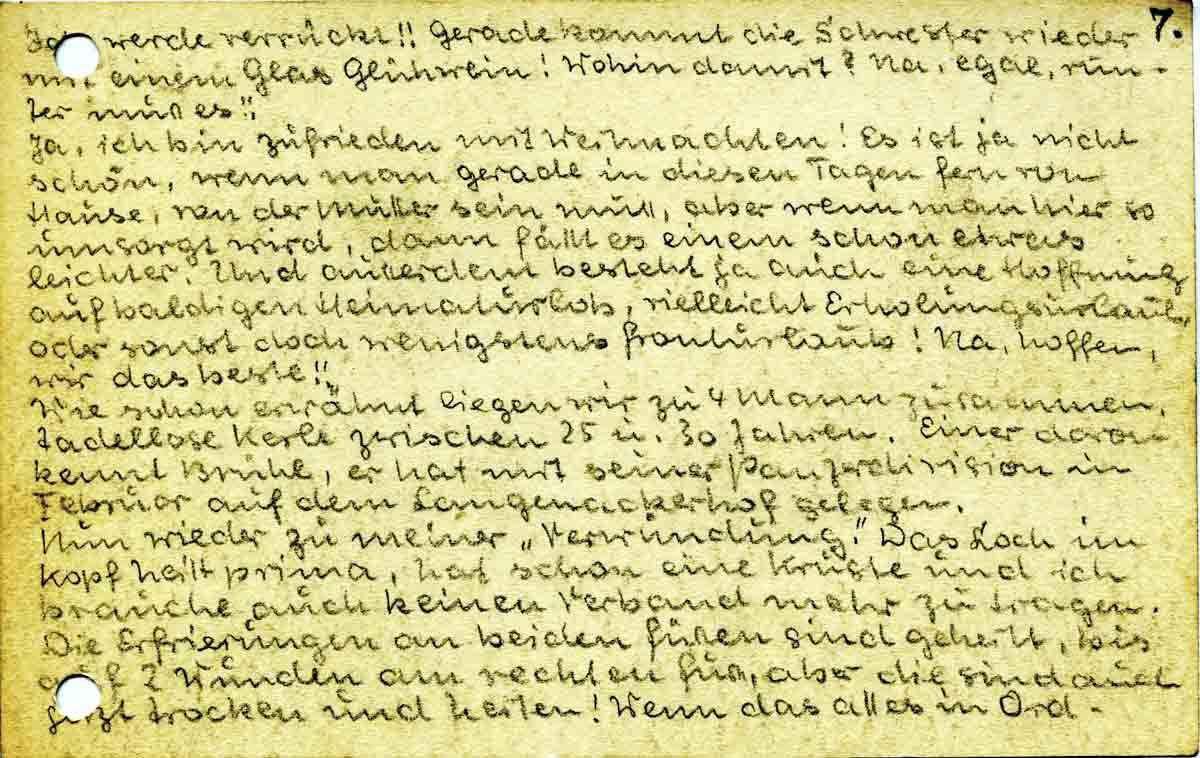 7.
Ich werde verrückt!! Gerade kommt die Schwester wieder
mit einem Glas Glühwein! Wohin damit? Na, egal, run-
ter muß es!!
Ja, ich bin zufrieden mit Weihnachten! Es ist ja nicht
schön, wenn man gerade in diesen Tagen fern von
Hause, von der Mutter sein muß, aber wenn man hier so
umsorgt wird, dann fällt es einem schon etwas
leichter. Und außerdem besteht ja auch eine Hoffnung
auf baldigen Heimaturlob, vielleicht Erholungsurlaub,
oder sonst doch wenigstens Fronturlaub! Na, hoffen,
wir das beste!!
Wie schon erwähnt liegen wir zu 4 Mann zusammen,
tadellose Kerle zwischen 25 u. 30 Jahren. Einer davon
kennt Brühl, er hat mit seiner Panzerdivision im
Februar auf dem Langenackerhof gelegen.
Nun wieder zu meiner „Verwundung." Das Loch im
Kopf heilt prima, hat schon eine Kruste und ich
brauche auch keinen Verband mehr zu tragen.
Die Erfrierungen an beiden Füßen sind geheilt, bis
auf 2 Wunden am rechten Fuß, aber die sind auch
jetzt trocken und heilen! Wenn das alles in Ord-